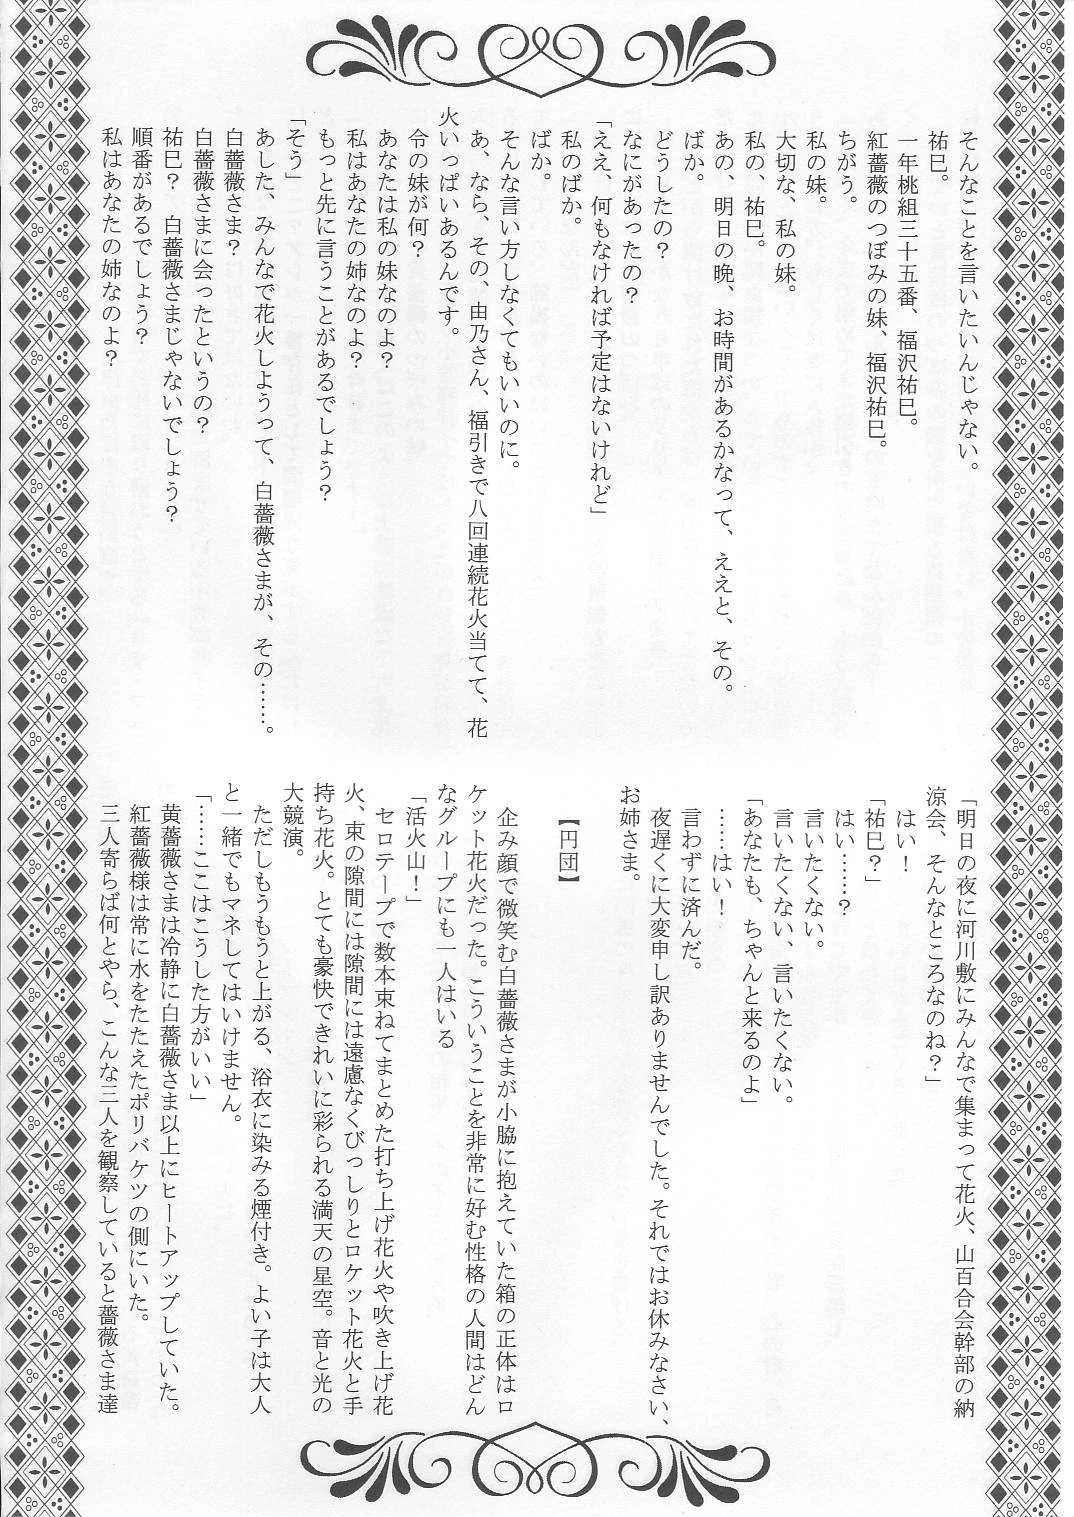 そんなことを言いたいんじゃない。
祐巳。
一年桃組三十五番、福沢祐巳。
紅薔薇のつぼみの妹、福沢祐巳。
ちがう。
私の妹。
大切な、私の妹。
私の、祐巳。
あの、明日の晩、お時間があるかなって、ええと、その。
ばか。
どうしたの?
なにがあったの?
「ええ、何もなければ予定はないけれど」
私のばか。
ばか。
そんな言い方しなくてもいいのに。
あ、なら、その、由乃さん、福引きで八回連続花火当てて、花
火いっぱいあるんです。
令の妹が何?
あなたは私の妹なのよ?
私はあなたの姉なのよ?
もっと先に言うことがあるでしょう?
「そう」
あした、みんなで花火しようって、白薔薇さまが、その……。
白薔薇さま?
白薔薇さまに会ったというの?
祐巳? 白薔薇さまじゃないでしょう?
順番があるでしょう?
私はあなたの姉なのよ?
「明日の夜に河川敷にみんなで集まって花火、山百合会幹部の納
涼会、そんなところなのね?」
はい!
「祐巳?」
はい……?
言いたくない。
言いたくない、言いたくない。
「あなたも、ちゃんと来るのよ」
……はい!
言わずに済んだ。
夜遅くに大変申し訳ありませんでした。それではお休みなさい、
お姉さま。
【円団】
企み顔で微笑む白薔薇さまが小脇に抱えていた箱の正体はロ
ケット花火だった。こういうことを非常に好む性格の人間はどん
なグループにも一人はいる
「活火山!」
セロテープで数本束ねてまとめた打ち上げ花火や吹き上げ花
火、束の隙間には隙間には遠慮なくびっしりとロケット花火と手
持ち花火。とても豪快できれいに彩られる満天の星空。音と光の
大競演。
ただしもうもうと上がる、浴衣に染みる煙付き。よい子は大人
と一緒でもマネしてはいけません。
「……ここはこうした方がいい」
黄薔薇さまは冷静に白薔薇さま以上にヒートアップしていた。
紅薔薇様は常に水をたたえたポリバケツの側にいた。
三人寄らば何とやら、こんな三人を観察していると薔薇さま達